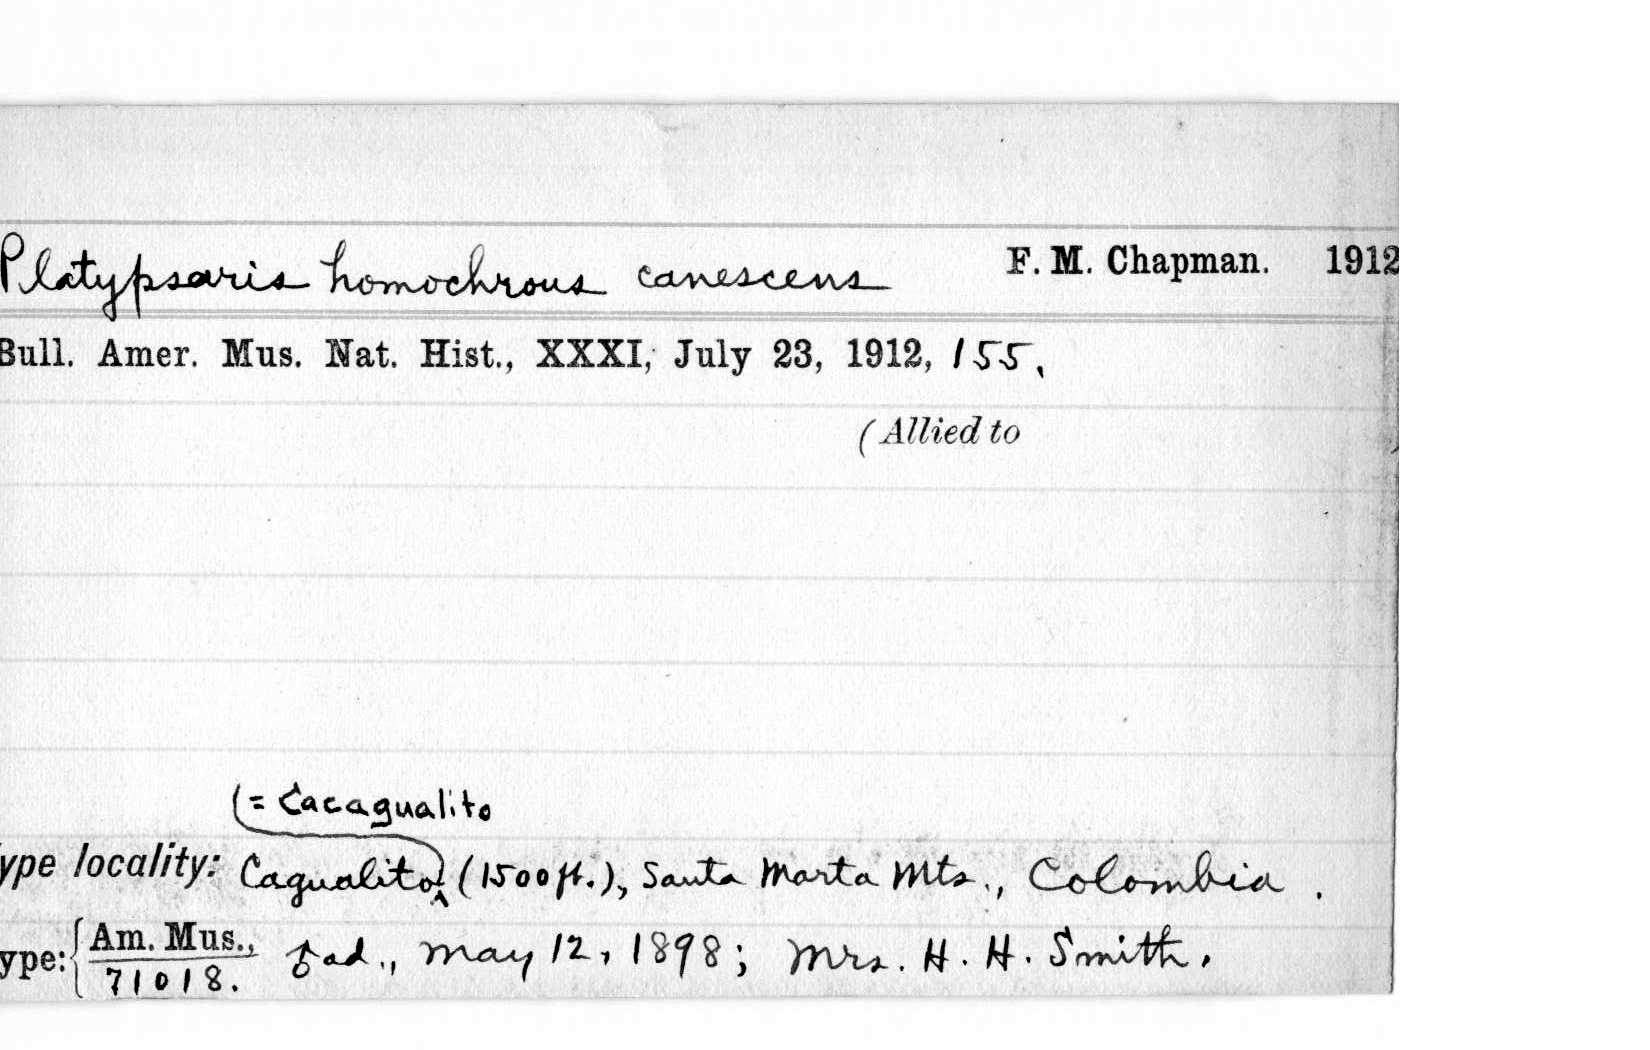 Platypsaris homochrous canescens F. M. Chapman. 1912
Bull. Amer. Mus. Nat. Hist., XXXI, July 23, 1912, 155.
(Allied to )
(= Cacagualito
ype locality: Cagualito) (1500 ft.), Santa Marta Mts., Colombia.
ype: { Am. Mus., ad., May 12, 1898; Mrs. H. H. Smith.
71018.